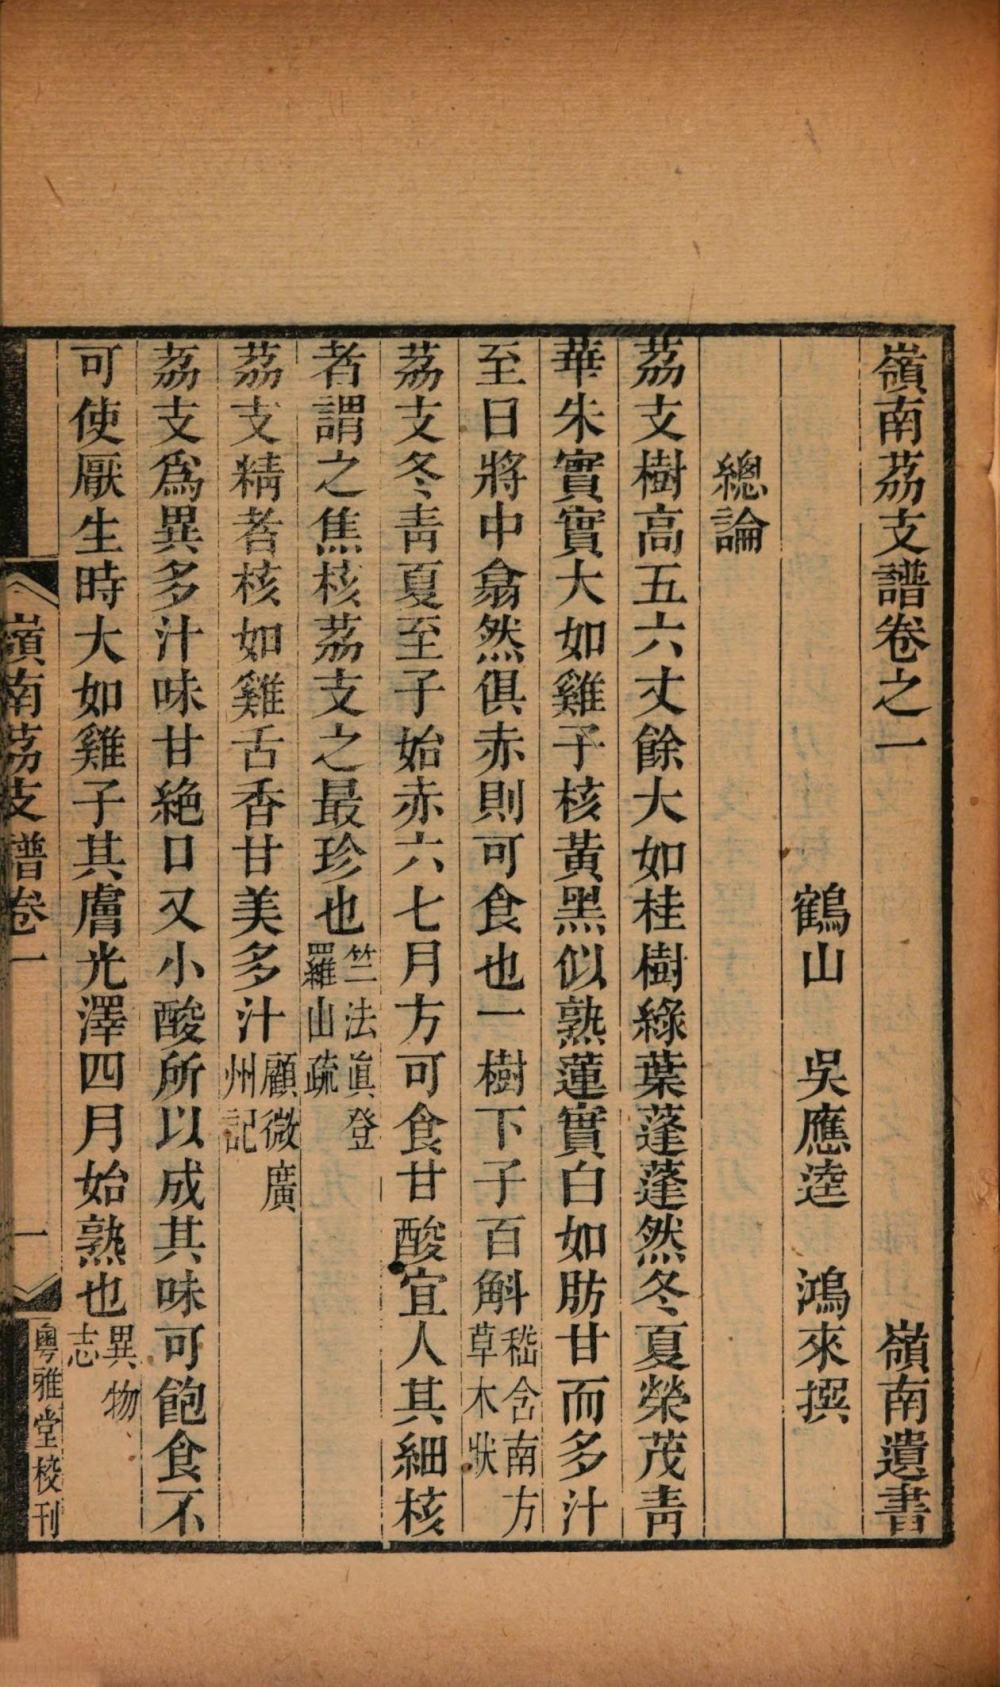 嶺南荔支譜卷之一　嶺南遺書
鶴山　吳應逵　鴻來撰
總論
荔支樹高五六丈餘大如桂樹綠葉蓬蓬然冬夏榮茂青
華朱實實大如雞子核黃黑似熟蓮實白如肪甘而多汁
至日將中翕然俱赤則可食也一樹下子百斛嵇含南方草木狀
荔支冬青夏至子始赤六七月方可食甘酸宜人其細核
者謂之焦核荔支之最珍也竺法眞登羅山疏
荔支精者核如雞舌香甘美多汁顧微廣州記
荔支爲異多汁味甘絶口又小酸所以成其味可飽食不
可使厭生時大如雞子其膚光澤四月始熟也異物志
嶺南荔支譜卷一　一　粵雅堂校刊